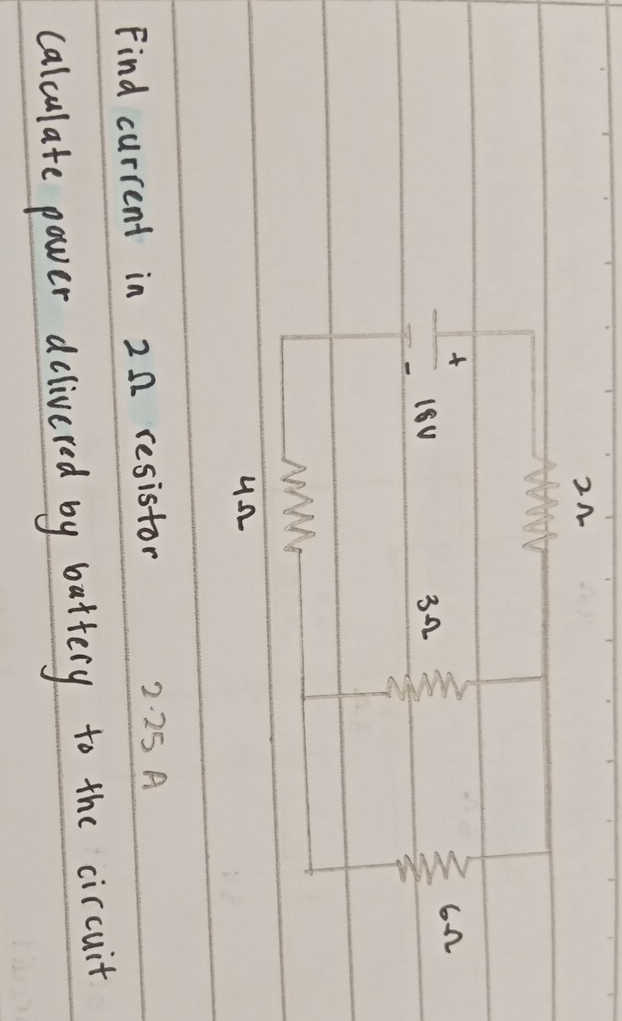 2Ω
+
18V
-
3Ω
6Ω
4Ω
Find current in 2Ω resistor 2.25 A
Calculate power delivered by battery to the circuit